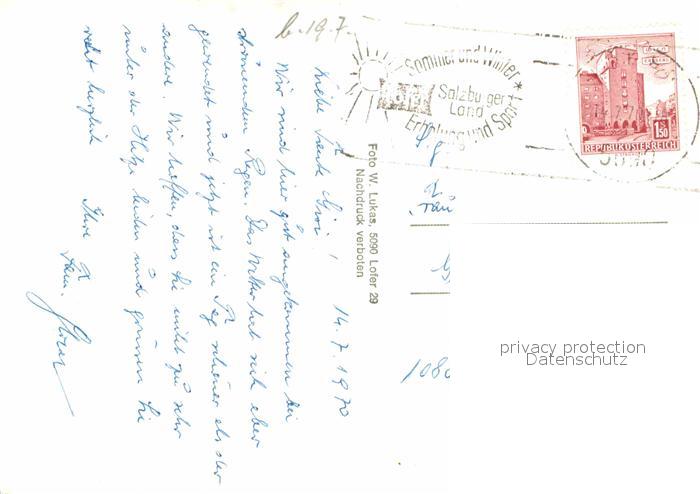 b. 19.7.
14.7.1970
Liebe
Wir sind hier gut angekommen bei
strömendem Regen. Das Wetter hat sich aber
gewendet und jetzt ist ein Tag schöner als der
andere. Wir hoffen, dass Sie nicht zu sehr
unter der Hitze leiden und grüssen Sie
recht herzlich
Ihre
Fam.
Foto W. Lukas, 5090 Lofer 29
Nachdruck verboten
Sommer und Winter *
Salzburger
Land
Erholung und Sport *
5090
1.50
REPUBLIK ÖSTERREICH
1080
privacy protection
Datenschutz